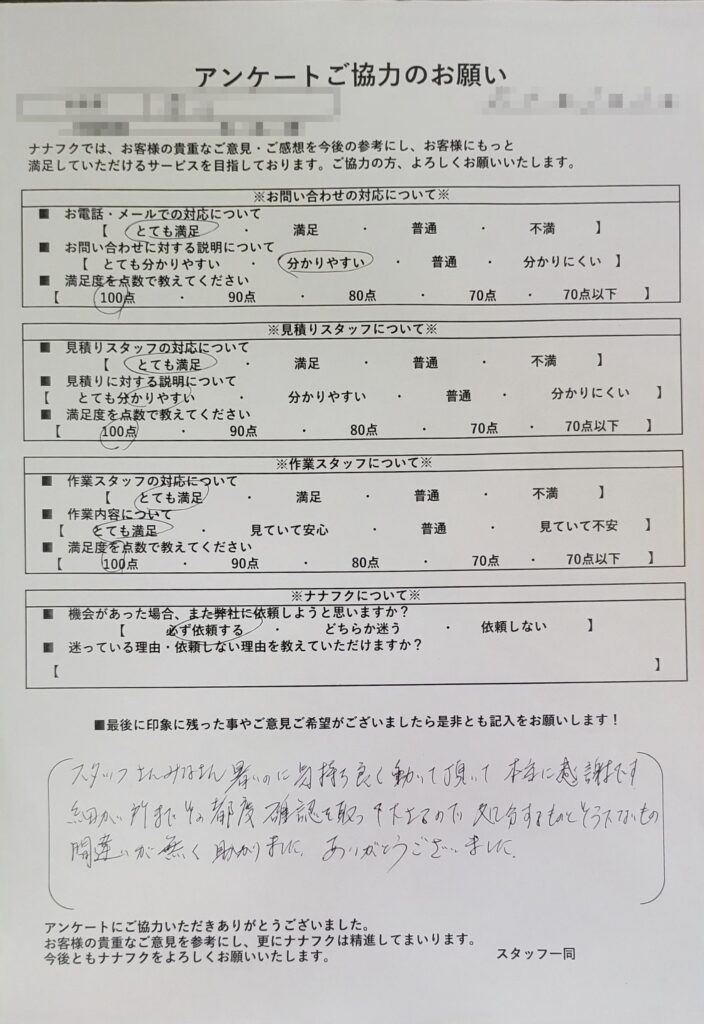 アンケートご協力のお願い
ナナフクでは、お客様の貴重なご意見・ご感想を今後の参考にし、お客様にもっと
満足していただけるサービスを目指しております。ご協力の方、よろしくお願いいたします。
※お問い合わせの対応について※
■ お電話・メールでの対応について
【 とても満足 ・ 満足 ・ 普通 ・ 不満 】
■ お問い合わせに対する説明について
【 とても分かりやすい ・ 分かりやすい ・ 普通 ・ 分かりにくい 】
■ 満足度を点数で教えてください
【 100点 ・ 90点 ・ 80点 ・ 70点 ・ 70点以下 】
※見積りスタッフについて※
■ 見積りスタッフの対応について
【 とても満足 ・ 満足 ・ 普通 ・ 不満 】
■ 見積りに対する説明について
【 とても分かりやすい ・ 分かりやすい ・ 普通 ・ 分かりにくい 】
■ 満足度を点数で教えてください
【 100点 ・ 90点 ・ 80点 ・ 70点 ・ 70点以下 】
※作業スタッフについて※
■ 作業スタッフの対応について
【 とても満足 ・ 満足 ・ 普通 ・ 不満 】
■ 作業内容について
【 とても満足 ・ 見ていて安心 ・ 普通 ・ 見ていて不安 】
■ 満足度を点数で教えてください
【 100点 ・ 90点 ・ 80点 ・ 70点 ・ 70点以下 】
※ナナフクについて※
■ 機会があった場合、また弊社に依頼しようと思いますか？
【 必ず依頼する ・ どちらか迷う ・ 依頼しない 】
■ 迷っている理由・依頼しない理由を教えていただけますか？
【 】
■最後に印象に残った事やご意見ご希望がございましたら是非とも記入をお願いします！
スタッフさんみなさん暑いのに気持ち良く動いて頂いて本当に感謝です
細かい所までその都度確認を取って下さるので処分するものとそうでないもの
間違いが無く助かりました。ありがとうございました。
アンケートにご協力いただきありがとうございました。
お客様の貴重なご意見を参考にし、更にナナフクは精進してまいります。
今後ともナナフクをよろしくお願いいたします。 スタッフ一同